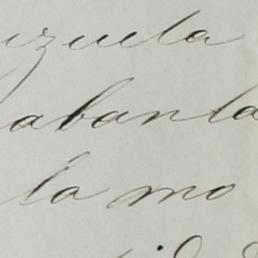 zuela
abanla
la mo